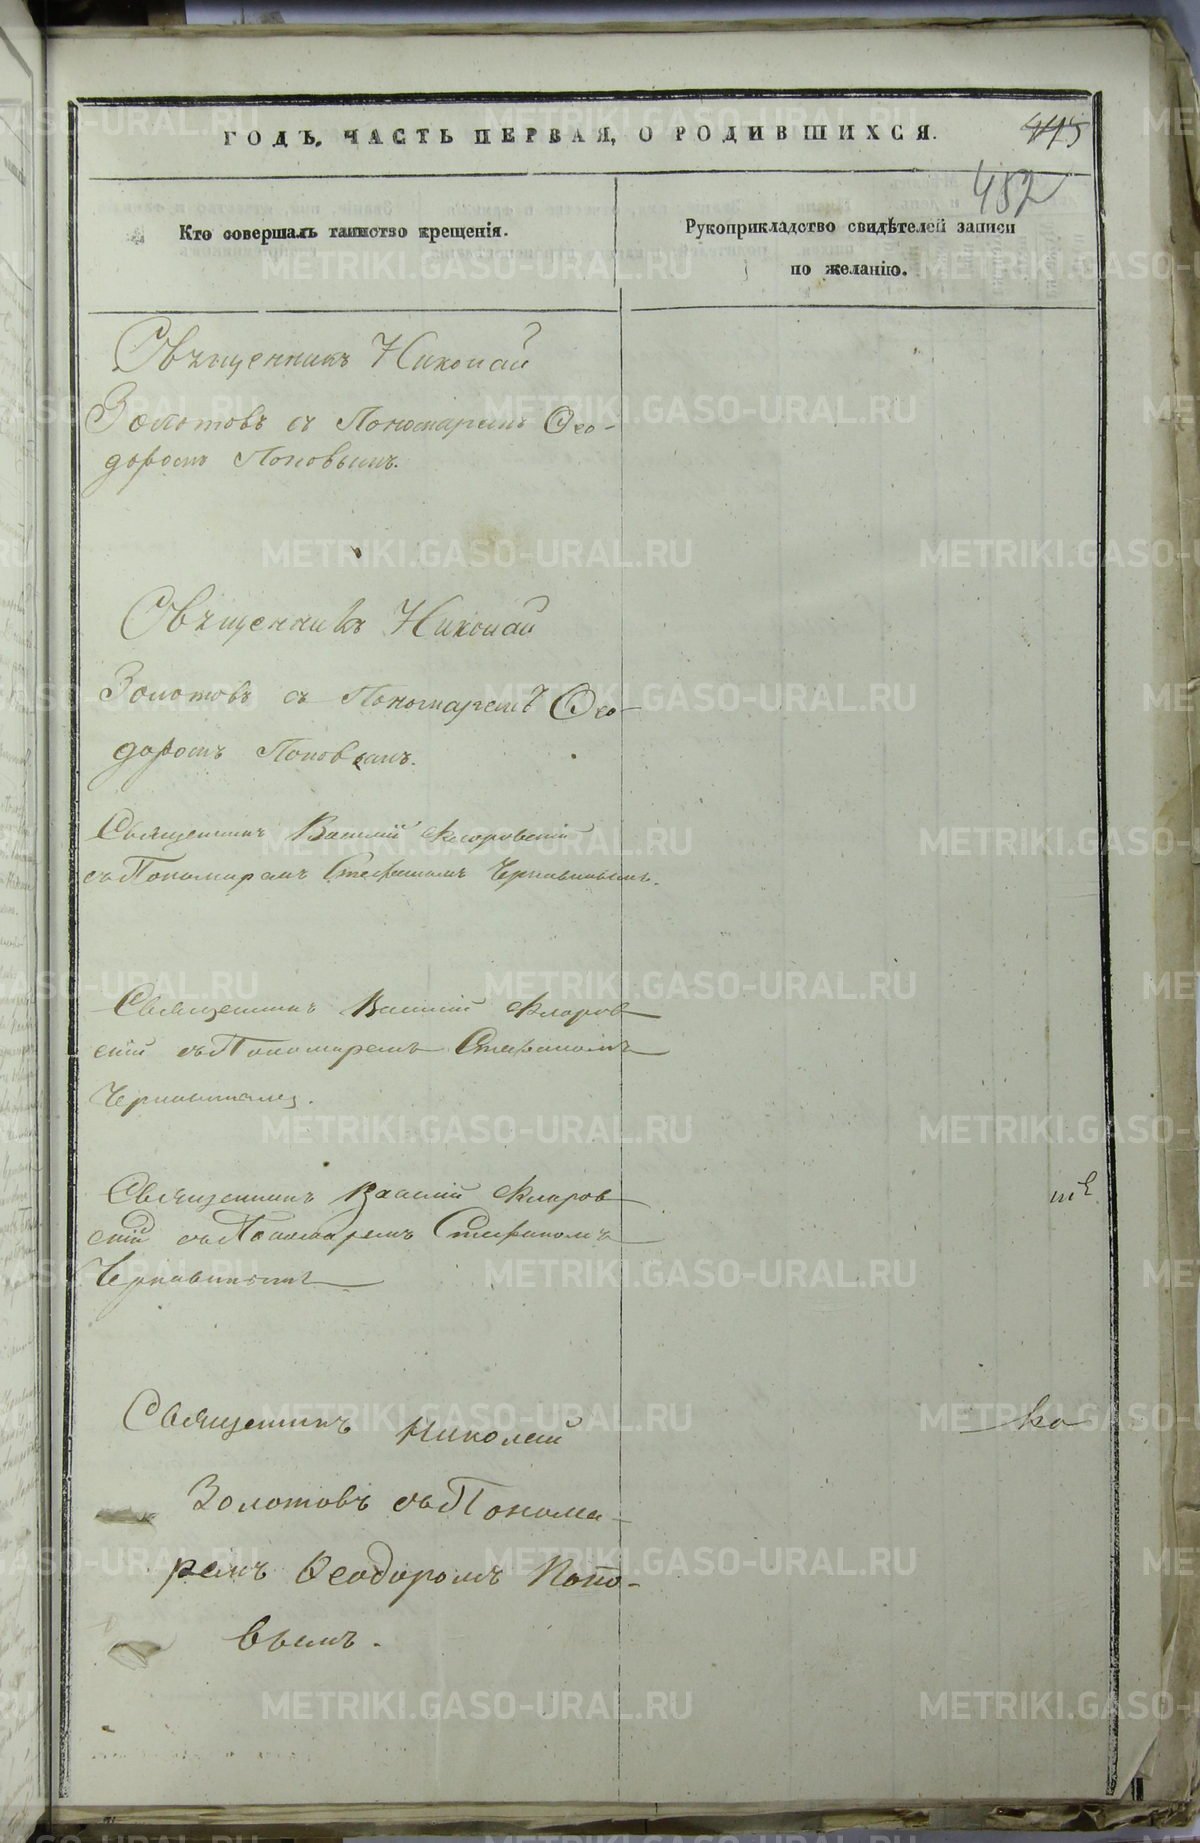 ГОДЪ. ЧАСТЬ ПЕРВАЯ, О РОДИВШИХСЯ.
445
482
Кто совершалъ таинство крещенія.
Рукоприкладство свидѣтелей записи
по желанію.
Свѣщенникъ Николай
Золотовъ съ Пономаремъ Ѳео-
доромъ Поповымъ.
Свѣщенникъ Николай
Золотовъ съ Пономаремъ Ѳео-
доромъ Поповымъ.
Священникъ Василій Флоровскій
съ Пономаремъ Стефаномъ Чернавинымъ.
Священникъ Василій Флоров
скій съ Пономаремъ Стефаномъ
Чернавинымъ.
Священникъ Василій Флоров
скій съ Пономаремъ Стефаномъ
Чернавинымъ
Священникъ Николай
ко
Золотовъ съ Понома-
ремъ Ѳеодоромъ Попо-
вымъ.
METRIKI.GASO-URAL.RU